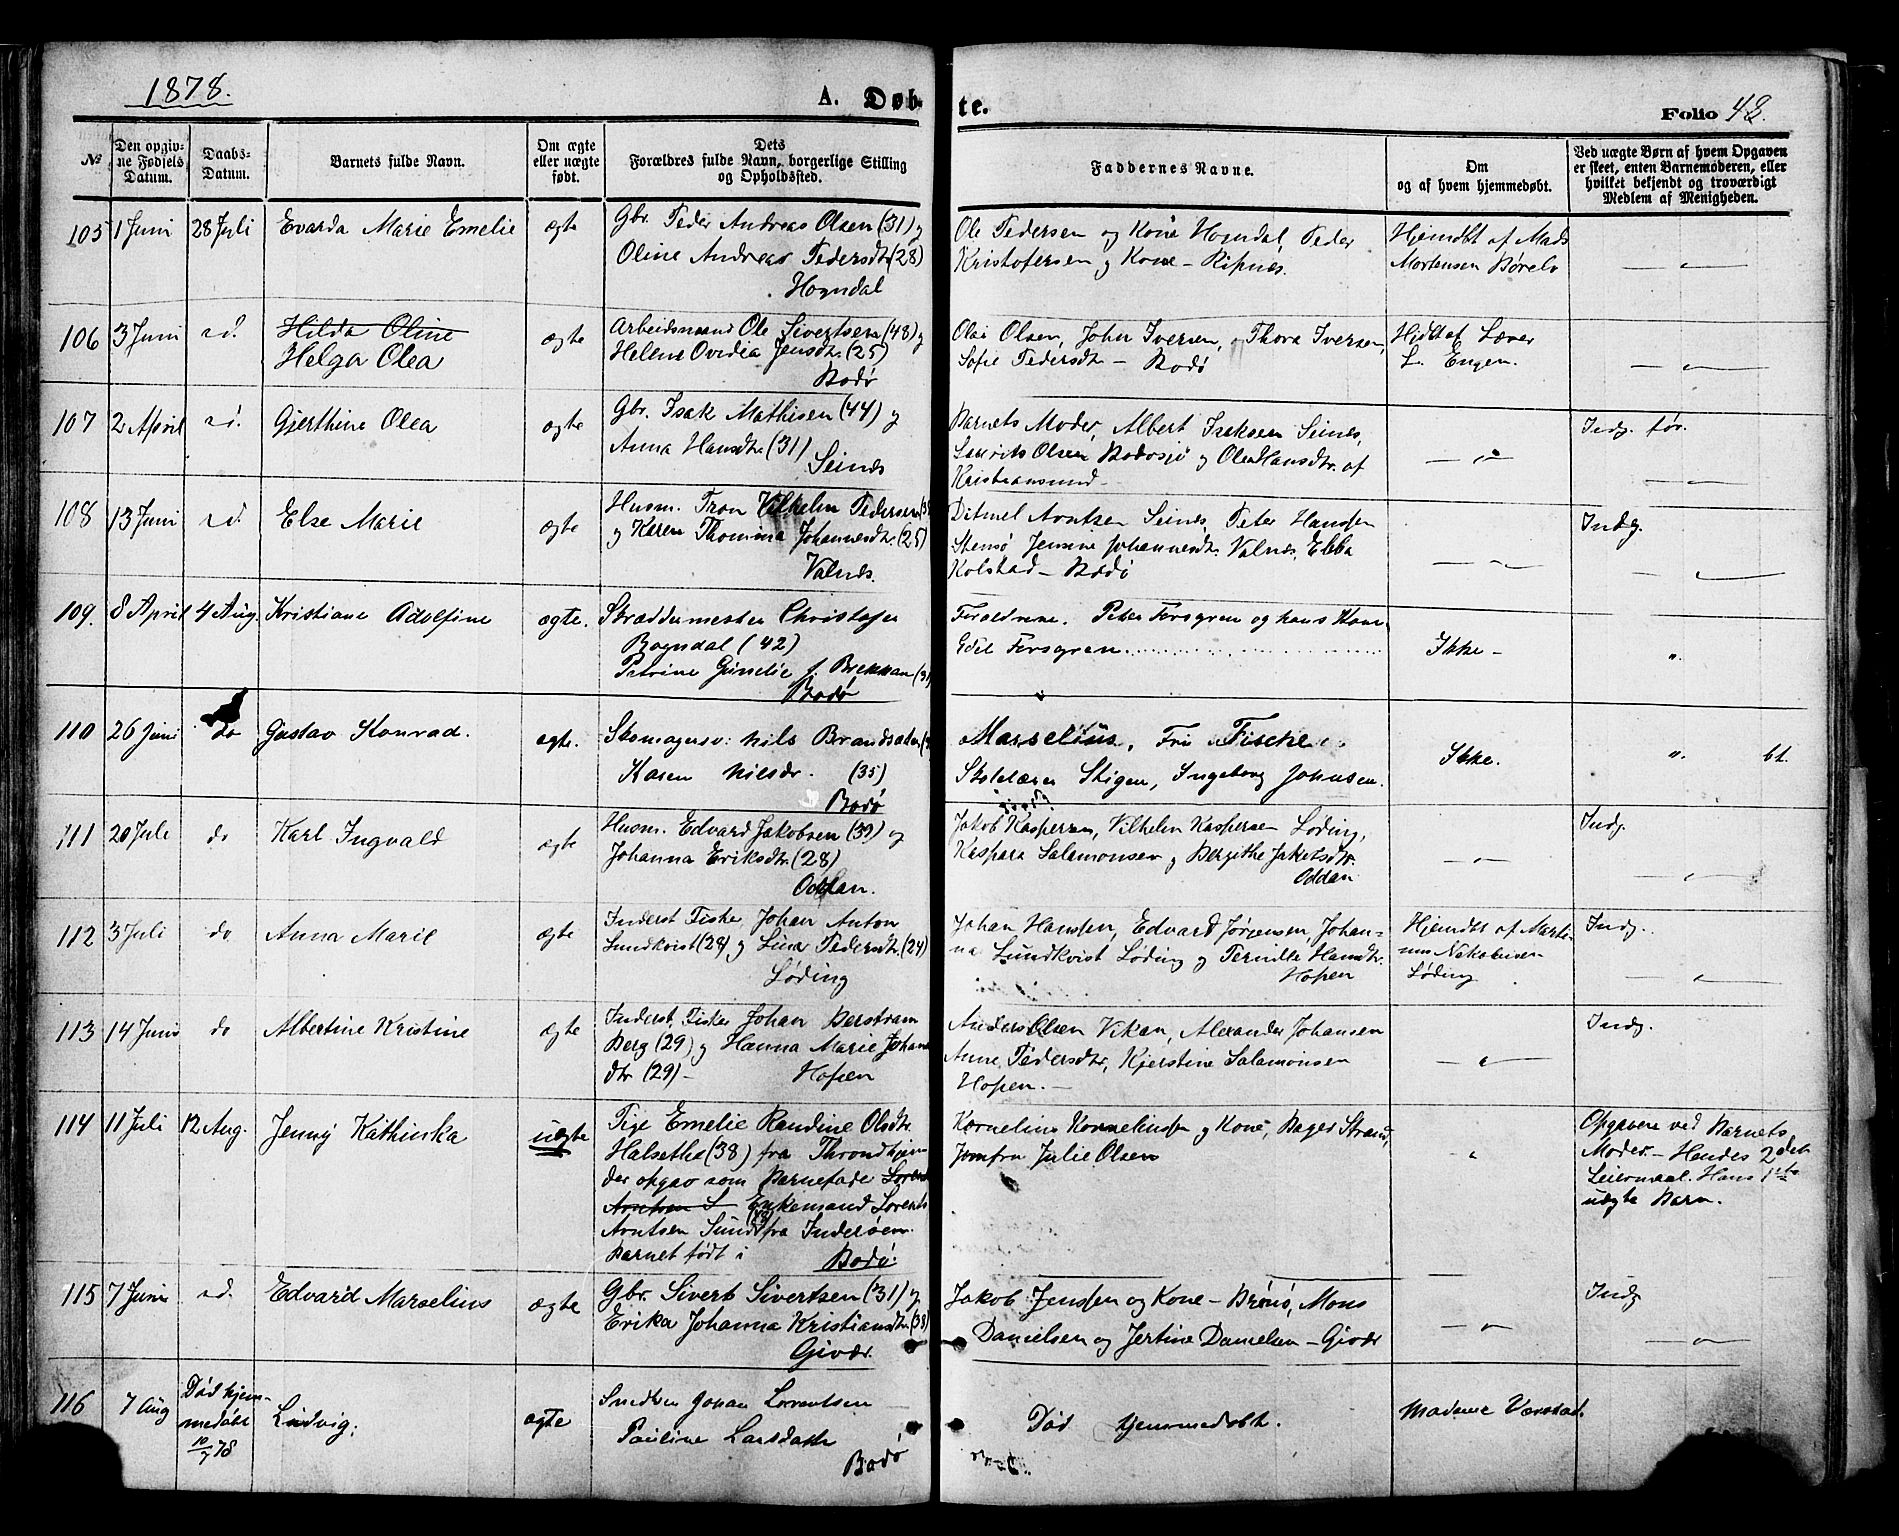 1878.
A. Døb-
te.
Folio 48.
№
Den opgiv-
ne Fødsels
Datum.
Daabs-
Datum.
Barnets fulde Navn.
Om ægte
eller uægte
født.
Dets
Forældres fulde Navn, borgerlige Stilling
og Opholdssted.
Faddernes Navne.
Om
og af hvem hjemmedøbt.
Ved uægte Børn af hvem Opgaven
er skeet, enten Barnemoderen, eller
hvilket bekjendt og troværdigt
Medlem af Menigheden.
105 1 Juni 28 Juli Evarda Marie Emelie ægte Gbr. Peder Andreas Olsen (31) og
Oline Andrea Pedersdtr (28)
Hogndal
Ole Pedersen og Kone Hogndal, Peder
Kristofersen og Kone – Ripnes.
Hjemdbt af Mads
Mortensen Børelv
106 3 Juni s.d. Hilda Oline
Helga Olea
ægte Arbeidsmand Ole Sivertsen (48) og
Helene Ovidia Jensdtr. (25)
Bodø
Olai Olsen, John Iversen, Thora Iversen,
Sofie Pedersdtr – Bodø
Hjdbt af Lærer
L. Engen.
107 2 April s.d. Gjerthine Olea ægte Gbr. Isak Mathisen (44) og
Anna Hansdtr. (31)
Seines
Barnets Moder, Albert Iseksen Seines,
Laurits Olsen Bodøsjø og Olea Hansdtr. af
Kristiansund
Indg. før.
108 13 Juni s.d. Else Marie ægte Husm. Tron Vilhelm Pedersen
og Karen Thomina Johannesdtr. (25)
Valnes.
Ditmel Arntsen Seines, Peter Hansen
Stensø, Jensine Johannesdtr. Valnes, Ebba
Kolstad – Bodø
Indg.
109. 8 April 4 Aug. Kristiane Adolfine ægte. Skræddermester Christofer
Bogndal (42)
Petrine Gunelie f. Brekkan
Bodø
Forældrene. Peter Forsgren og hans Kone
Edel Forsgren
Ikke –
110 26 Juni do Gustav Konrad. ægte. Skomagersv: Nils Brandsæter
Karen Nilsdr. (35)
Bodø
Marselius, Fru Fische
Skolelærer Stigen, Ingeborg Johnsen.
Ikke. bt.
111 20 Juli do Karl Ingvald ægte Husm. Edvard Jakobsen (39) og
Johanna Eriksdtr (28)
Oddan.
Jakob Kaspersen, Vilhelm Kaspersen Løding,
Kaspara Salamonsen og Bergithe Jakobsdtr.
Oddan
Indg.
112 3 Juli do Anna Marie ægte Inderst Fisker Johan Anton
Lundkvist (28) og Lina Pedersdtr. (24)
Løding
Johan Hansen, Edvard Jørgensen, Johan-
na Lundkvist Løding og Pernille Hansdtr.
Hopen
Hjemdbt af Marti-
nus Jakobsen
Løding
Indg.
113 14 Juni do Albertine Kristine ægte Inderst, Fisker Johan Berstram
Berg (29) og Hanna Marie Johans
dtr (29) – Hopen
Anders Olsen Vikan, Alexander Johansen
Anne Pedersdtr, Kjerstine Salamonsen
Hopen. –
Indg.
114 11 Juli 12 Aug. Jenny Kathinka uægte Pige Emelie Randine Olsdtr.
Halseths (38) fra Throndhjem
der opgav som Barnefader Lorents
Arntsen S Enkemand Lorents
Arntsen Sund fra Inderøen.
Barnet født i Bodø.
Kornelius Kornelius­sen og Kone, Bager Strand,
Jomfru Julie Olsen
Opgaven ved Barnets
Moder – Hendes 2det
Leiermaal. Hans 1ste
uægte Barn.
115 7 Juni s.d. Edvard Marselius ægte Gbr. Sivert Sivertsen (31) og
Erika Johanna Kristiansdtr (38)
Givær.
Jakob Jensen og Kone – Brønø, Mons
Danielsen og Jertine Danielsen – Givær
Indg
116 7 Aug Død hjem-
medøbt
10/7 78
Ludvig. ægte Smedsv Johan Lorentsen
Pauline Larsdatter
Bodø
Død hjemmedøbt.
Madame Værstad.